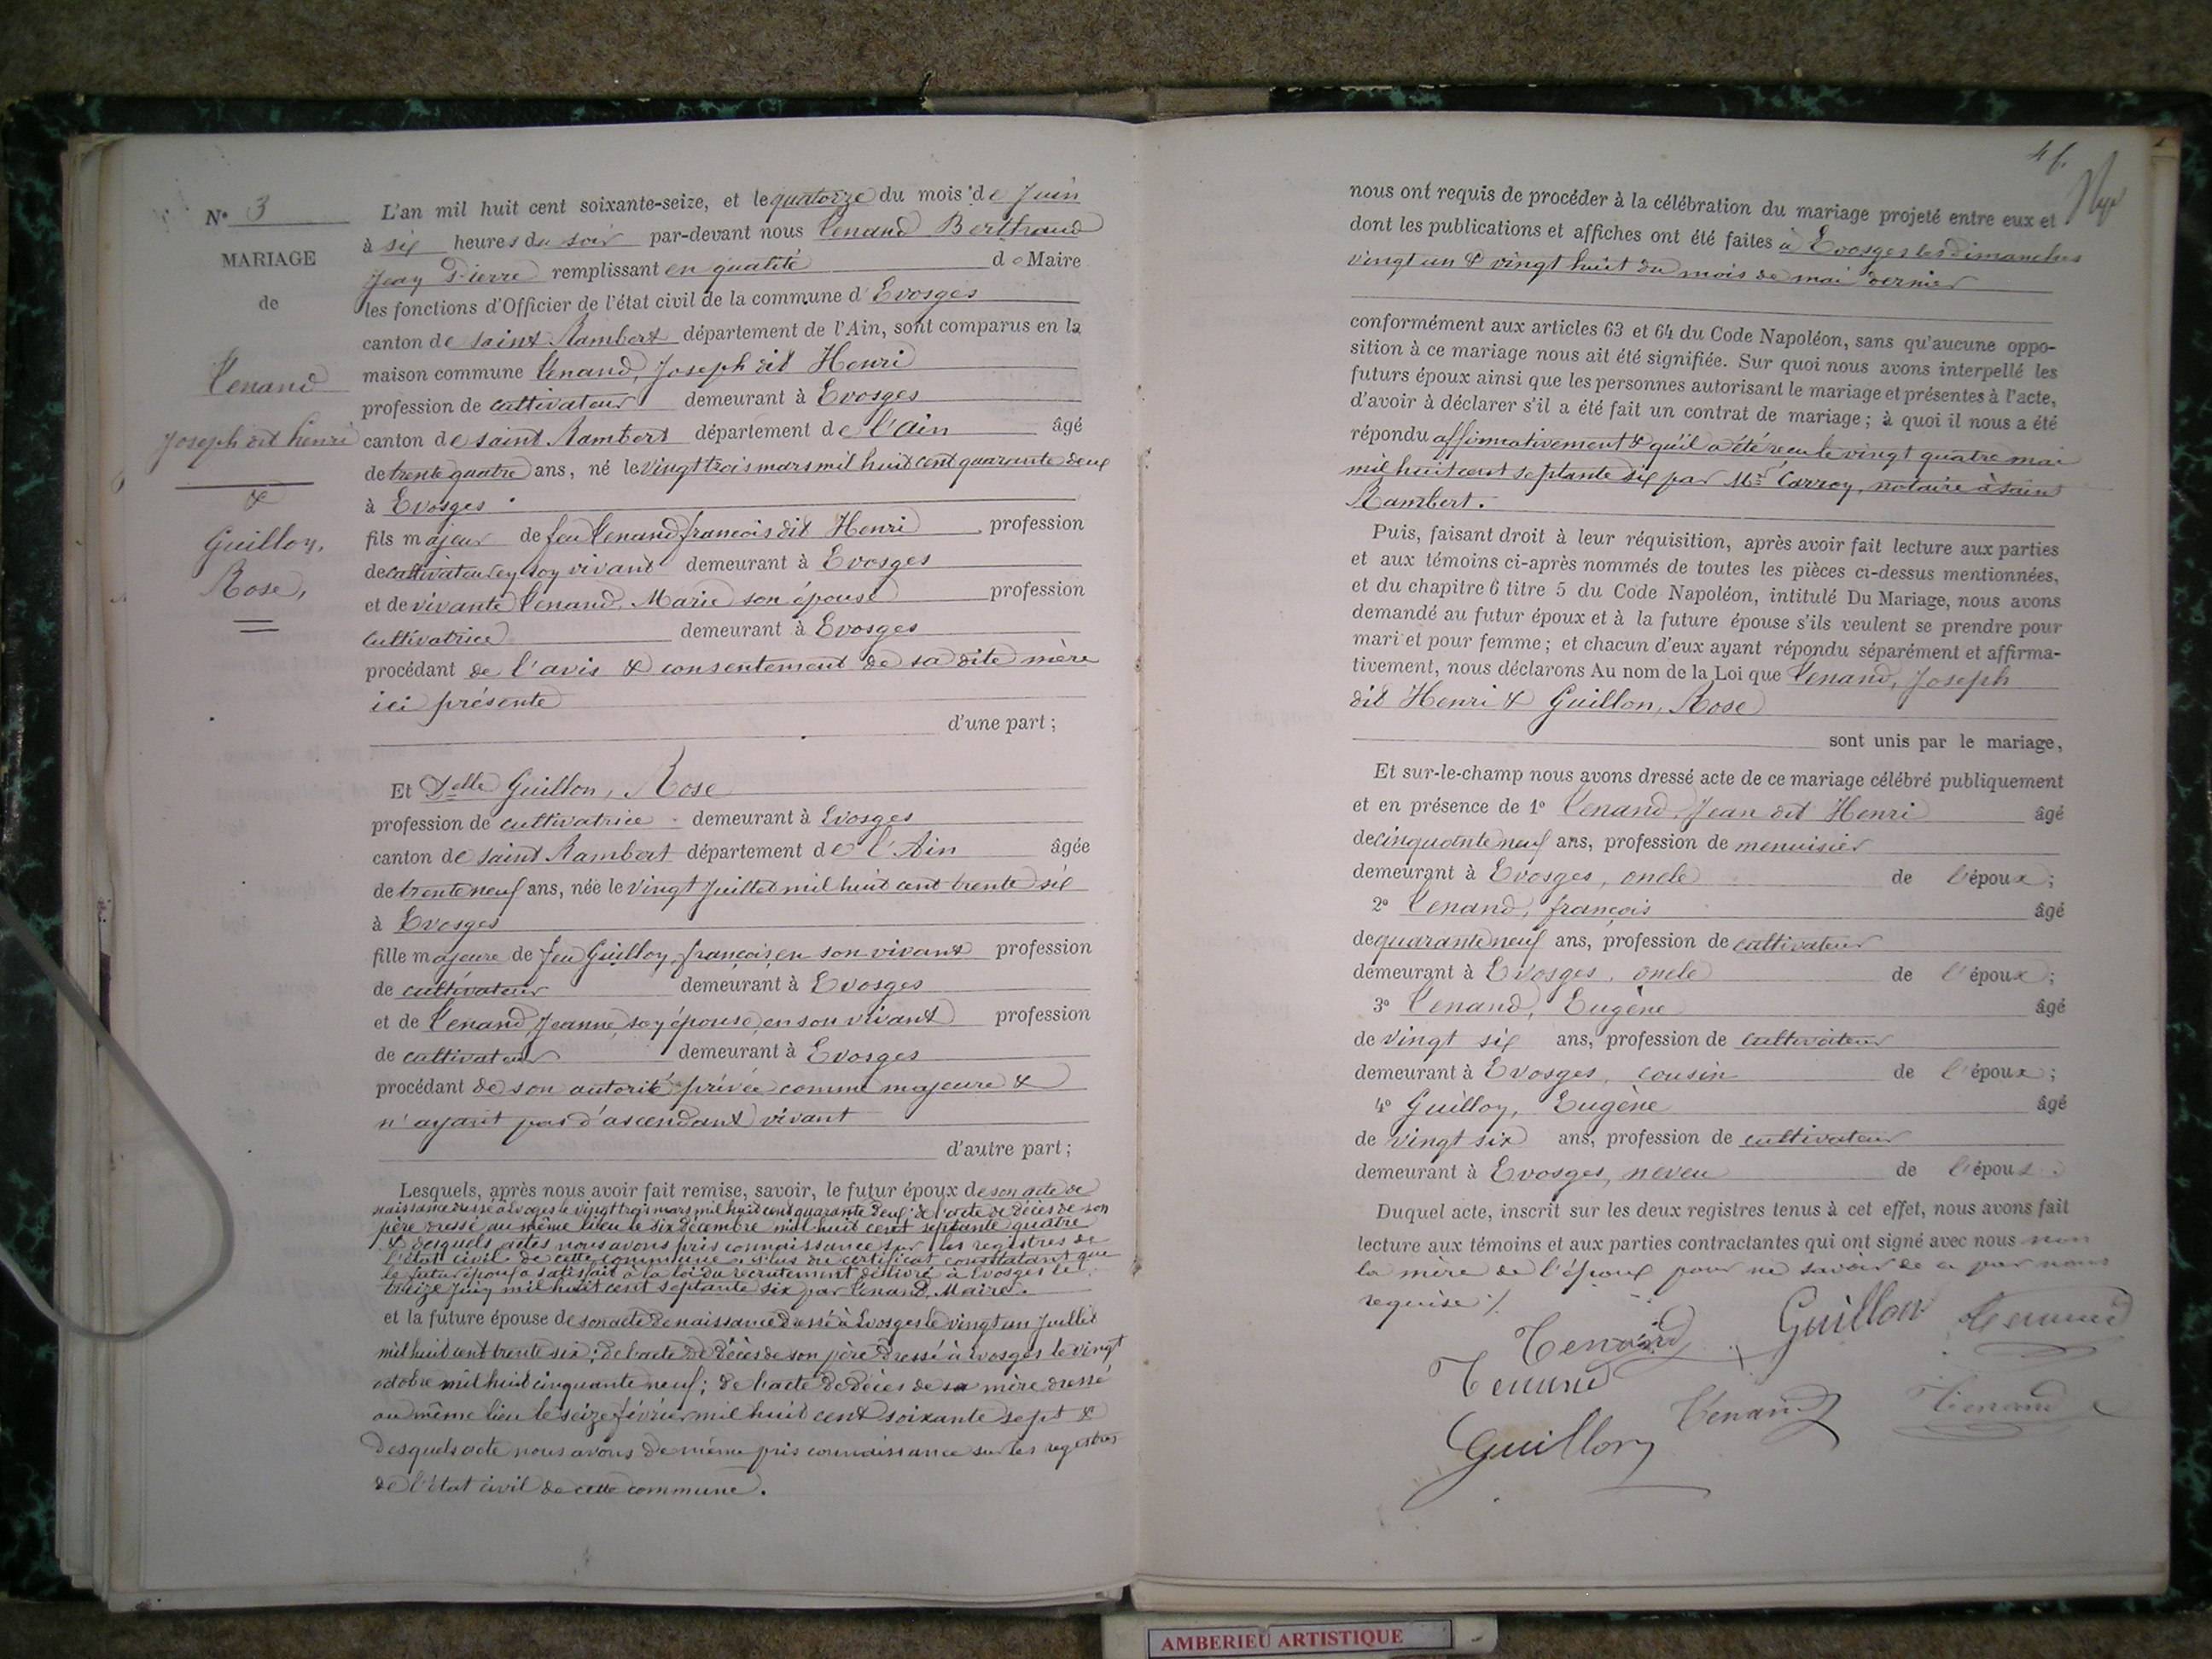 N° 3
MARIAGE
de
Tenand
Joseph dit henri
&
Guillon,
Rose,
L'an mil huit cent soixante-seize, et le quatorze du mois de Juin
à six heures du soir par-devant nous Tenand Berthrand
Jean Pierre remplissant en qualité de Maire
les fonctions d'Officier de l'état civil de la commune d'Evosges
canton de saint Rambert département de l'Ain, sont comparus en la
maison commune Tenand, Joseph dit Henri
profession de cultivateur demeurant à Evosges
canton de saint Rambert département de l'Ain âgé
de trente quatre ans, né le vingt trois mars mil huit cent quarante deux
à Evosges
fils majeur de feu Tenand françois dit Henri profession
de cultivateur en son vivant demeurant à Evosges
et de vivante Tenand, Marie son épouse profession
cultivatrice demeurant à Evosges
procédant de l'avis & consentement de sa dite mère
ici présente
d'une part ;
Et Delle Guillon, Rose
profession de cultivatrice demeurant à Evosges
canton de saint Rambert département de l'Ain âgée
de trente neuf ans, née le vingt Juillet mil huit cent trente six
à Evosges
fille majeure de feu Guillon, françois en son vivant profession
de cultivateur demeurant à Evosges
et de Tenand, Jeanne, son épouse, en son vivant profession
de cultivateur demeurant à Evosges
procédant de son autorité privée comme majeure &
n'ayant pas d'ascendant vivant
d'autre part ;
Lesquels, après nous avoir fait remise, savoir, le futur époux de son acte de
naissance dressé à Evoges le vingt trois mars mil huit cent quarante deux ; de l'acte de décès de son
père dressé au même lieu le six décembre mil huit cent septante quatre
& desquels actes nous avons pris connaissance sur les registres de
l'état civil de cette commune, plus du certificat constatant que
le futur époux a satisfait à la loi du recrutement délivré à Evosges le
treize Juin mil huit cent septante six par Tenand, Maire.
et la future épouse de son acte de naissance dressé à Evosges le vingt un Juillet
mil huit cent trente six ; de l'acte de décès de son père dressé à Evosges le vingt
octobre mil huit cinquante neuf ; de l'acte de décès de sa mère dressé
au même lieu le seize février mil huit cent soixante sept &
desquels acte nous avons de même pris connaissance sur les registres
de l'état civil de cette commune.
nous ont requis de procéder à la célébration du mariage projeté entre eux et
dont les publications et affiches ont été faites à Evosges les dimanches
vingt un & vingt huit du mois de mai dernier
conformément aux articles 63 et 64 du Code Napoléon, sans qu'aucune oppo-
sition à ce mariage nous ait été signifiée. Sur quoi nous avons interpellé les
futurs époux ainsi que les personnes autorisant le mariage et présentes à l'acte,
d'avoir à déclarer s'il a été fait un contrat de mariage ; à quoi il nous a été
répondu affirmativement & qu'il a été reçu le vingt quatre mai
mil huit cent septante six par Mr Carroy, notaire à saint
Rambert.
Puis, faisant droit à leur réquisition, après avoir fait lecture aux parties
et aux témoins ci-après nommés de toutes les pièces ci-dessus mentionnées,
et du chapitre 6 titre 5 du Code Napoléon, intitulé Du Mariage, nous avons
demandé au futur époux et à la future épouse s'ils veulent se prendre pour
mari et pour femme ; et chacun d'eux ayant répondu séparément et affirma-
tivement, nous déclarons Au nom de la Loi que Tenand, Joseph
dit Henri & Guillon, Rose
sont unis par le mariage,
Et sur-le-champ nous avons dressé acte de ce mariage célébré publiquement
et en présence de 1° Tenand, Jean dit Henri âgé
de cinquante neuf ans, profession de menuisier
demeurant à Evosges, oncle de l'époux ;
2° Tenand, françois âgé
de quarante neuf ans, profession de cultivateur
demeurant à Evosges, oncle de l'époux ;
3° Tenand, Eugène âgé
de vingt six ans, profession de cultivateur
demeurant à Evosges, cousin de l'époux ;
4° Guillon, Eugène âgé
de vingt six ans, profession de cultivateur
demeurant à Evosges, neveu de l'épous.
Duquel acte, inscrit sur les deux registres tenus à cet effet, nous avons fait
lecture aux témoins et aux parties contractantes qui ont signé avec nous non
la mère de l'époux pour ne savoir de ce par nous
requise ./.
Tenand Guillon Tenand
Tenand Tenand Tenand
Guillon
AMBERIEU ARTISTIQUE